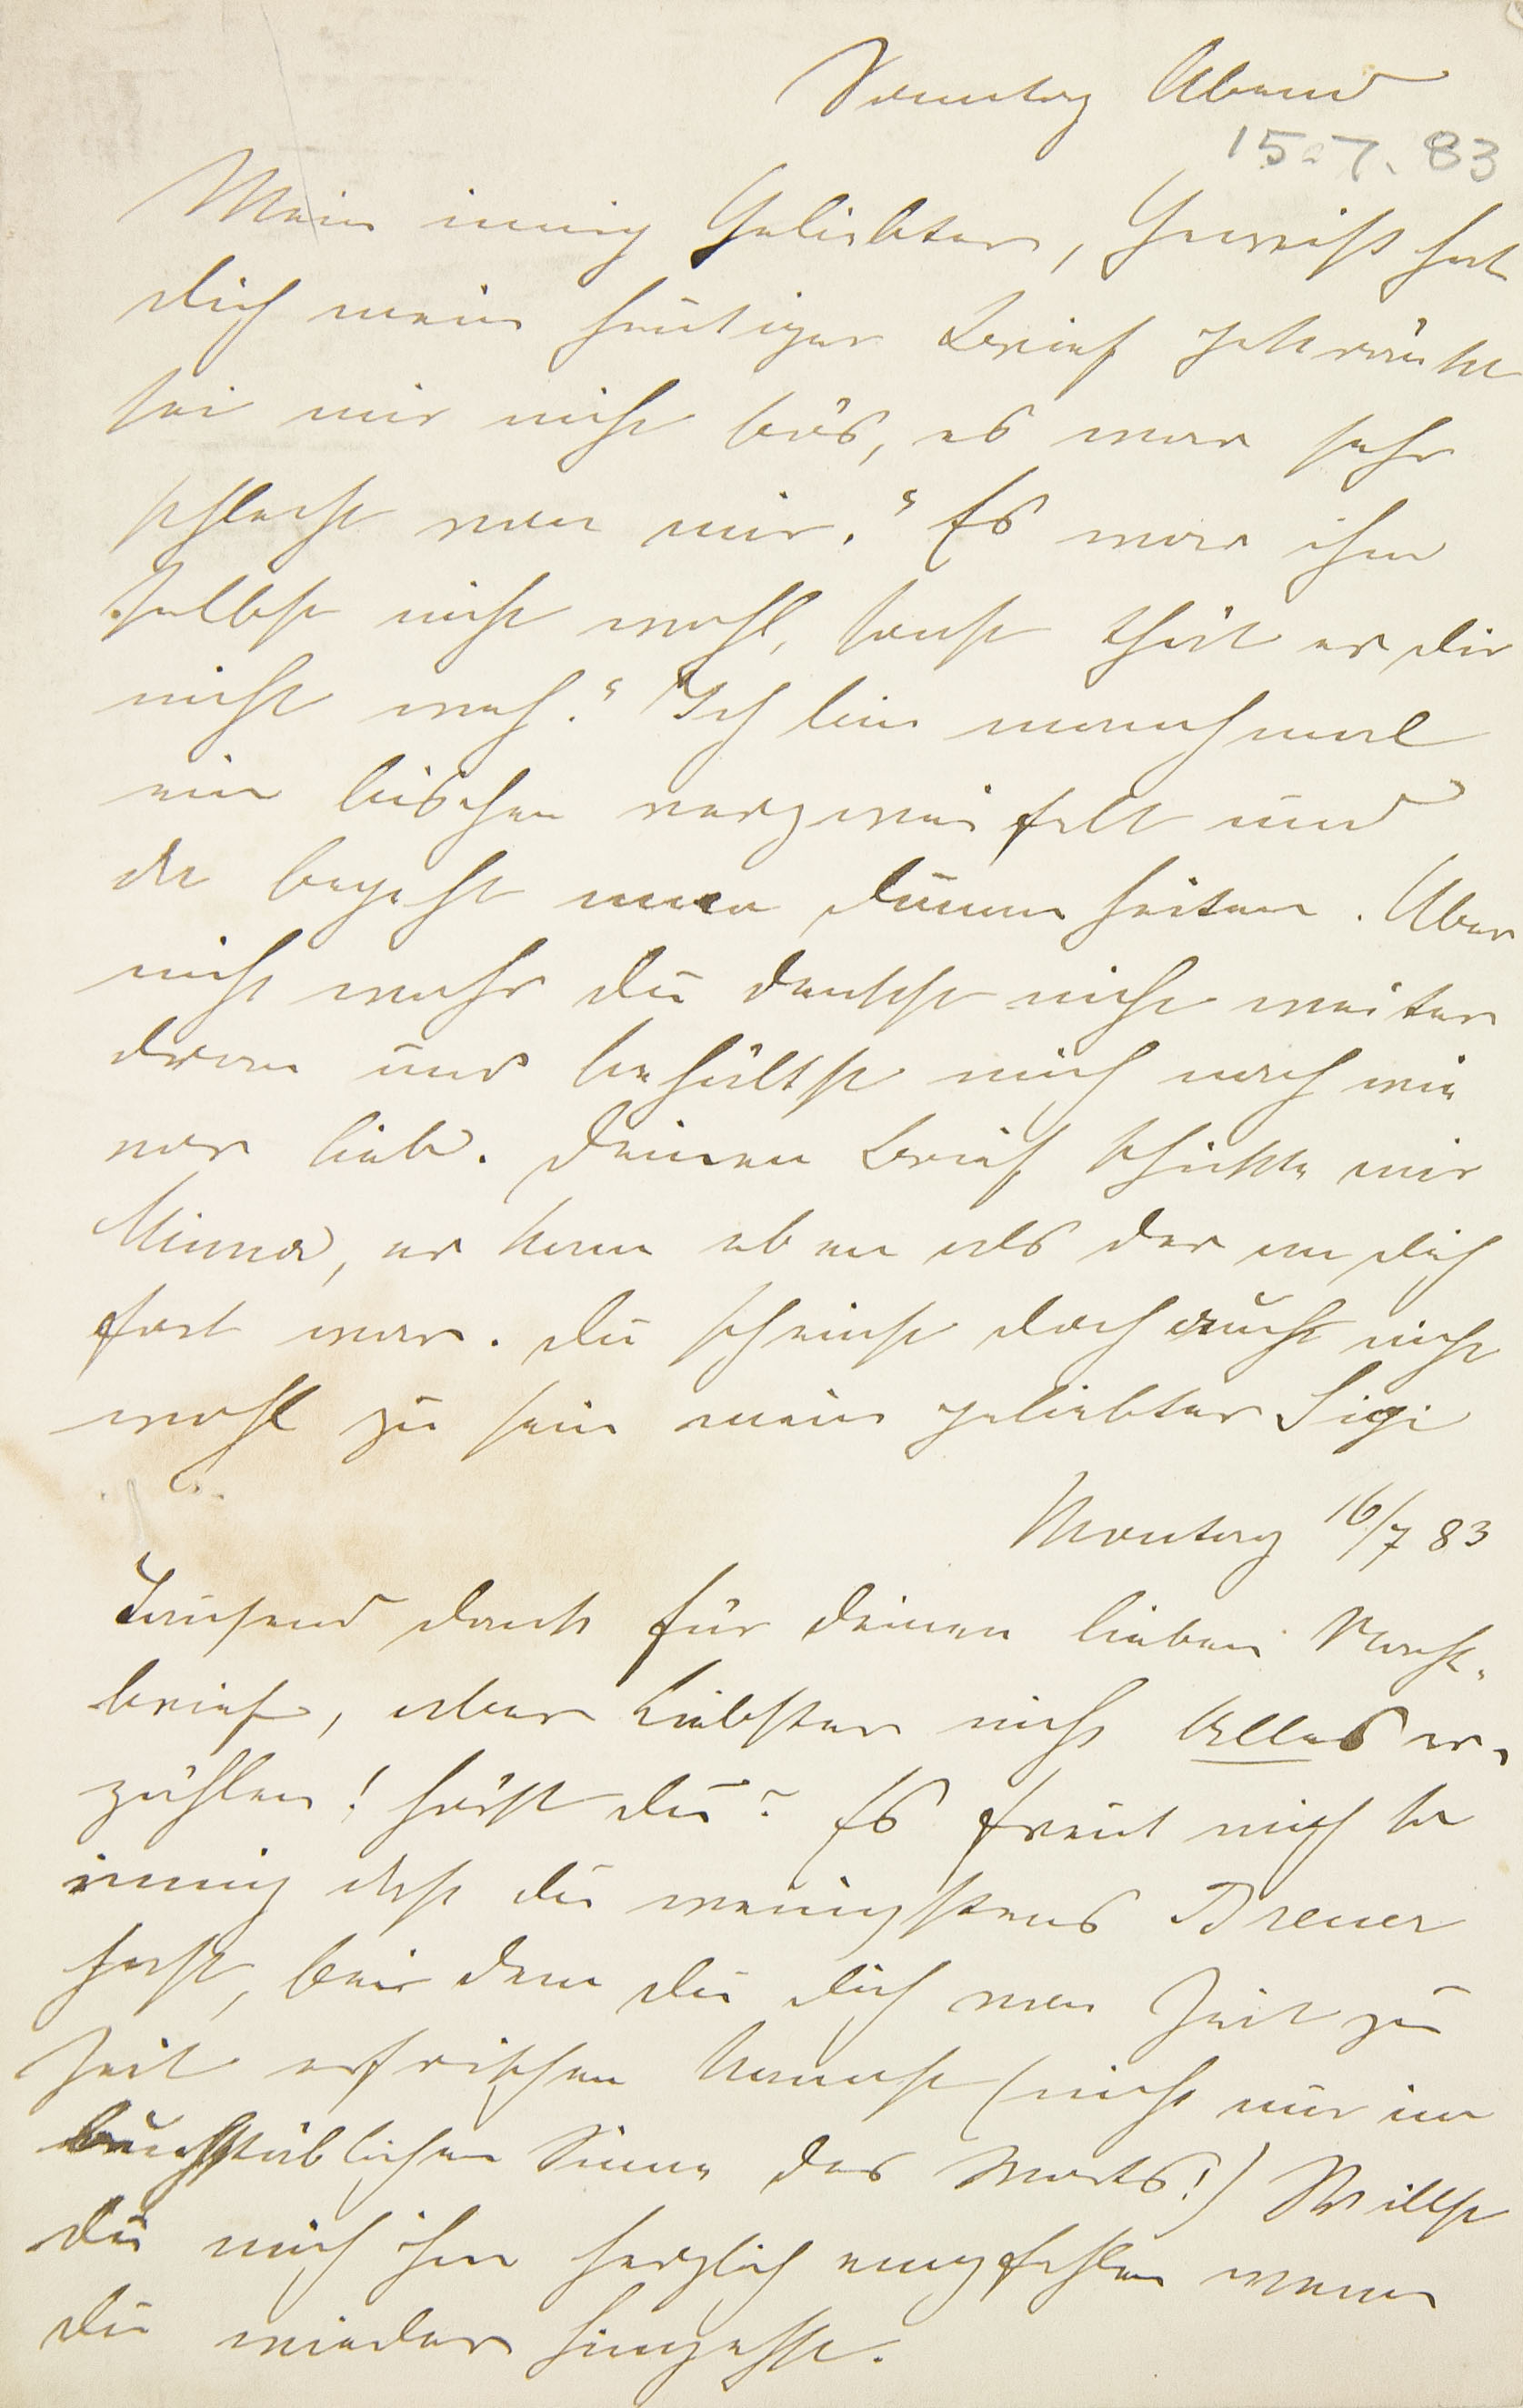 Sonntag Abend
15.7.83
Mein innig Geliebter, Gewiß hat
dich mein heutiger Brief gekränkt
sei mir nicht bös, es war sehr
schlecht von mir. "Es war ihm
selbst nicht wohl, sonst thät er dir
nicht weh." Ich bin manchmal
ein bischen verzweifelt und
da begeht man Dummheiten. Aber
nicht wahr du denkst nicht weiter
dran und behältst mich nach wie
vor lieb. Deinen Brief schickte mir
Minna, er kam eben als der an dich
fort war. Du scheinst doch auch nicht
wohl zu sein mein geliebter Sigi
Montag 16/7 83
Tausend dank für deinen lieben Nacht-
brief, aber Liebster nicht Alles er-
zählen! hörst du? Es freut mich so
innig daß du wenigstens Breuer
hast, bei dem du dich von Zeit zu
Zeit erfrischen kannst (nicht nur im
buchstäblichen Sinne des Worts!) Willst
du mich ihm herzlich empfehlen wenn
du wieder hingehst.